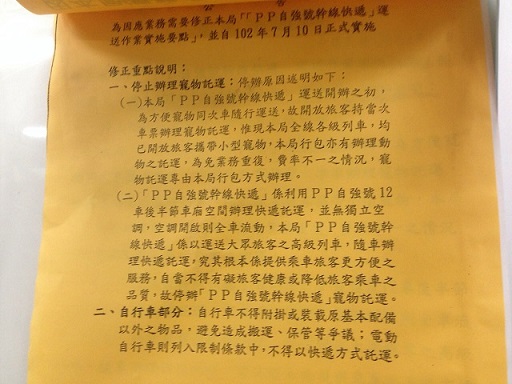 公 告
為因應業務需要修正本局「「PP自強號幹線快遞」運
送作業實施要點」，並自102年7月10日正式實施
修正重點說明：
一、停止辦理寵物託運：停辦原因述明如下：
(一)本局「PP自強號幹線快遞」運送開辦之初，
為方便寵物同次車隨行運送，故開放旅客持當次
車票辦理寵物託運，惟現本局全線各級列車，均
已開放旅客攜帶小型寵物，本局行包亦有辦理動
物之託運，為免業務重復，費率不一之情況，寵
物託運專由本局行包方式辦理。
(二)「PP自強號幹線快遞」係利用PP自強號12
車後半節車廂空間辦理快遞託運，並無獨立空
調，空調開啟則全車流動，本局「PP自強號幹
線快遞」係以運送大眾旅客之高級列車，隨車辦
理快遞託運，究其根本係提供乘車旅客更方便之
服務，自當不得有礙旅客健康或降低旅客乘車之
品質，故停辦「PP自強號幹線快遞」寵物託運。
二、自行車部分：自行車不得附掛或裝載原基本配備
以外之物品，避免造成搬運、保管等爭議；電動
自行車則列入限制條款中，不得以快遞方式託運。